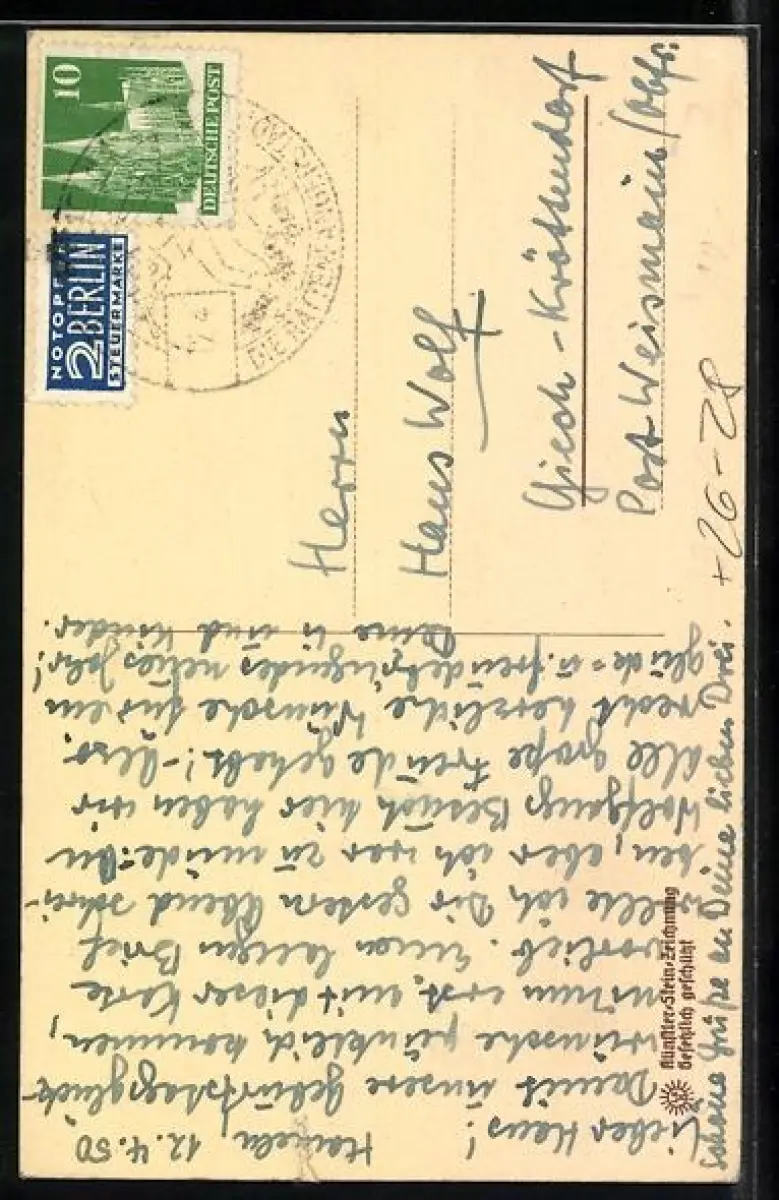 Hameln, 12.4.50
Lieber Hans!
Damit unsere Geburtstagsglück-
wünsche pünktlich kommen,
nimm erst mit dieser Karte
vorlieb. Einen langen Brief
wollte ich Dir gestern Abend schrei-
ben, aber ich war zu müde. An
Wolfgangs Besuch hier haben wir
alle große Freude gehabt! - Also
recht herzliche Wünsche für ein
glück- u. freudebringendes neues Jahr!
Deine und Kinder.
Schöne Grüße an Deine lieben Drei.
Künstler-Stein-Zeichnung
Gesetzlich geschützt
10
DEUTSCHE POST
NOTOPFER
2 BERLIN
STEUERMARKE
DIE RATTENF
Herrn
Hans Wolf
Giech-Kröttendorf
Post Weismain/Obfr.
+26-28